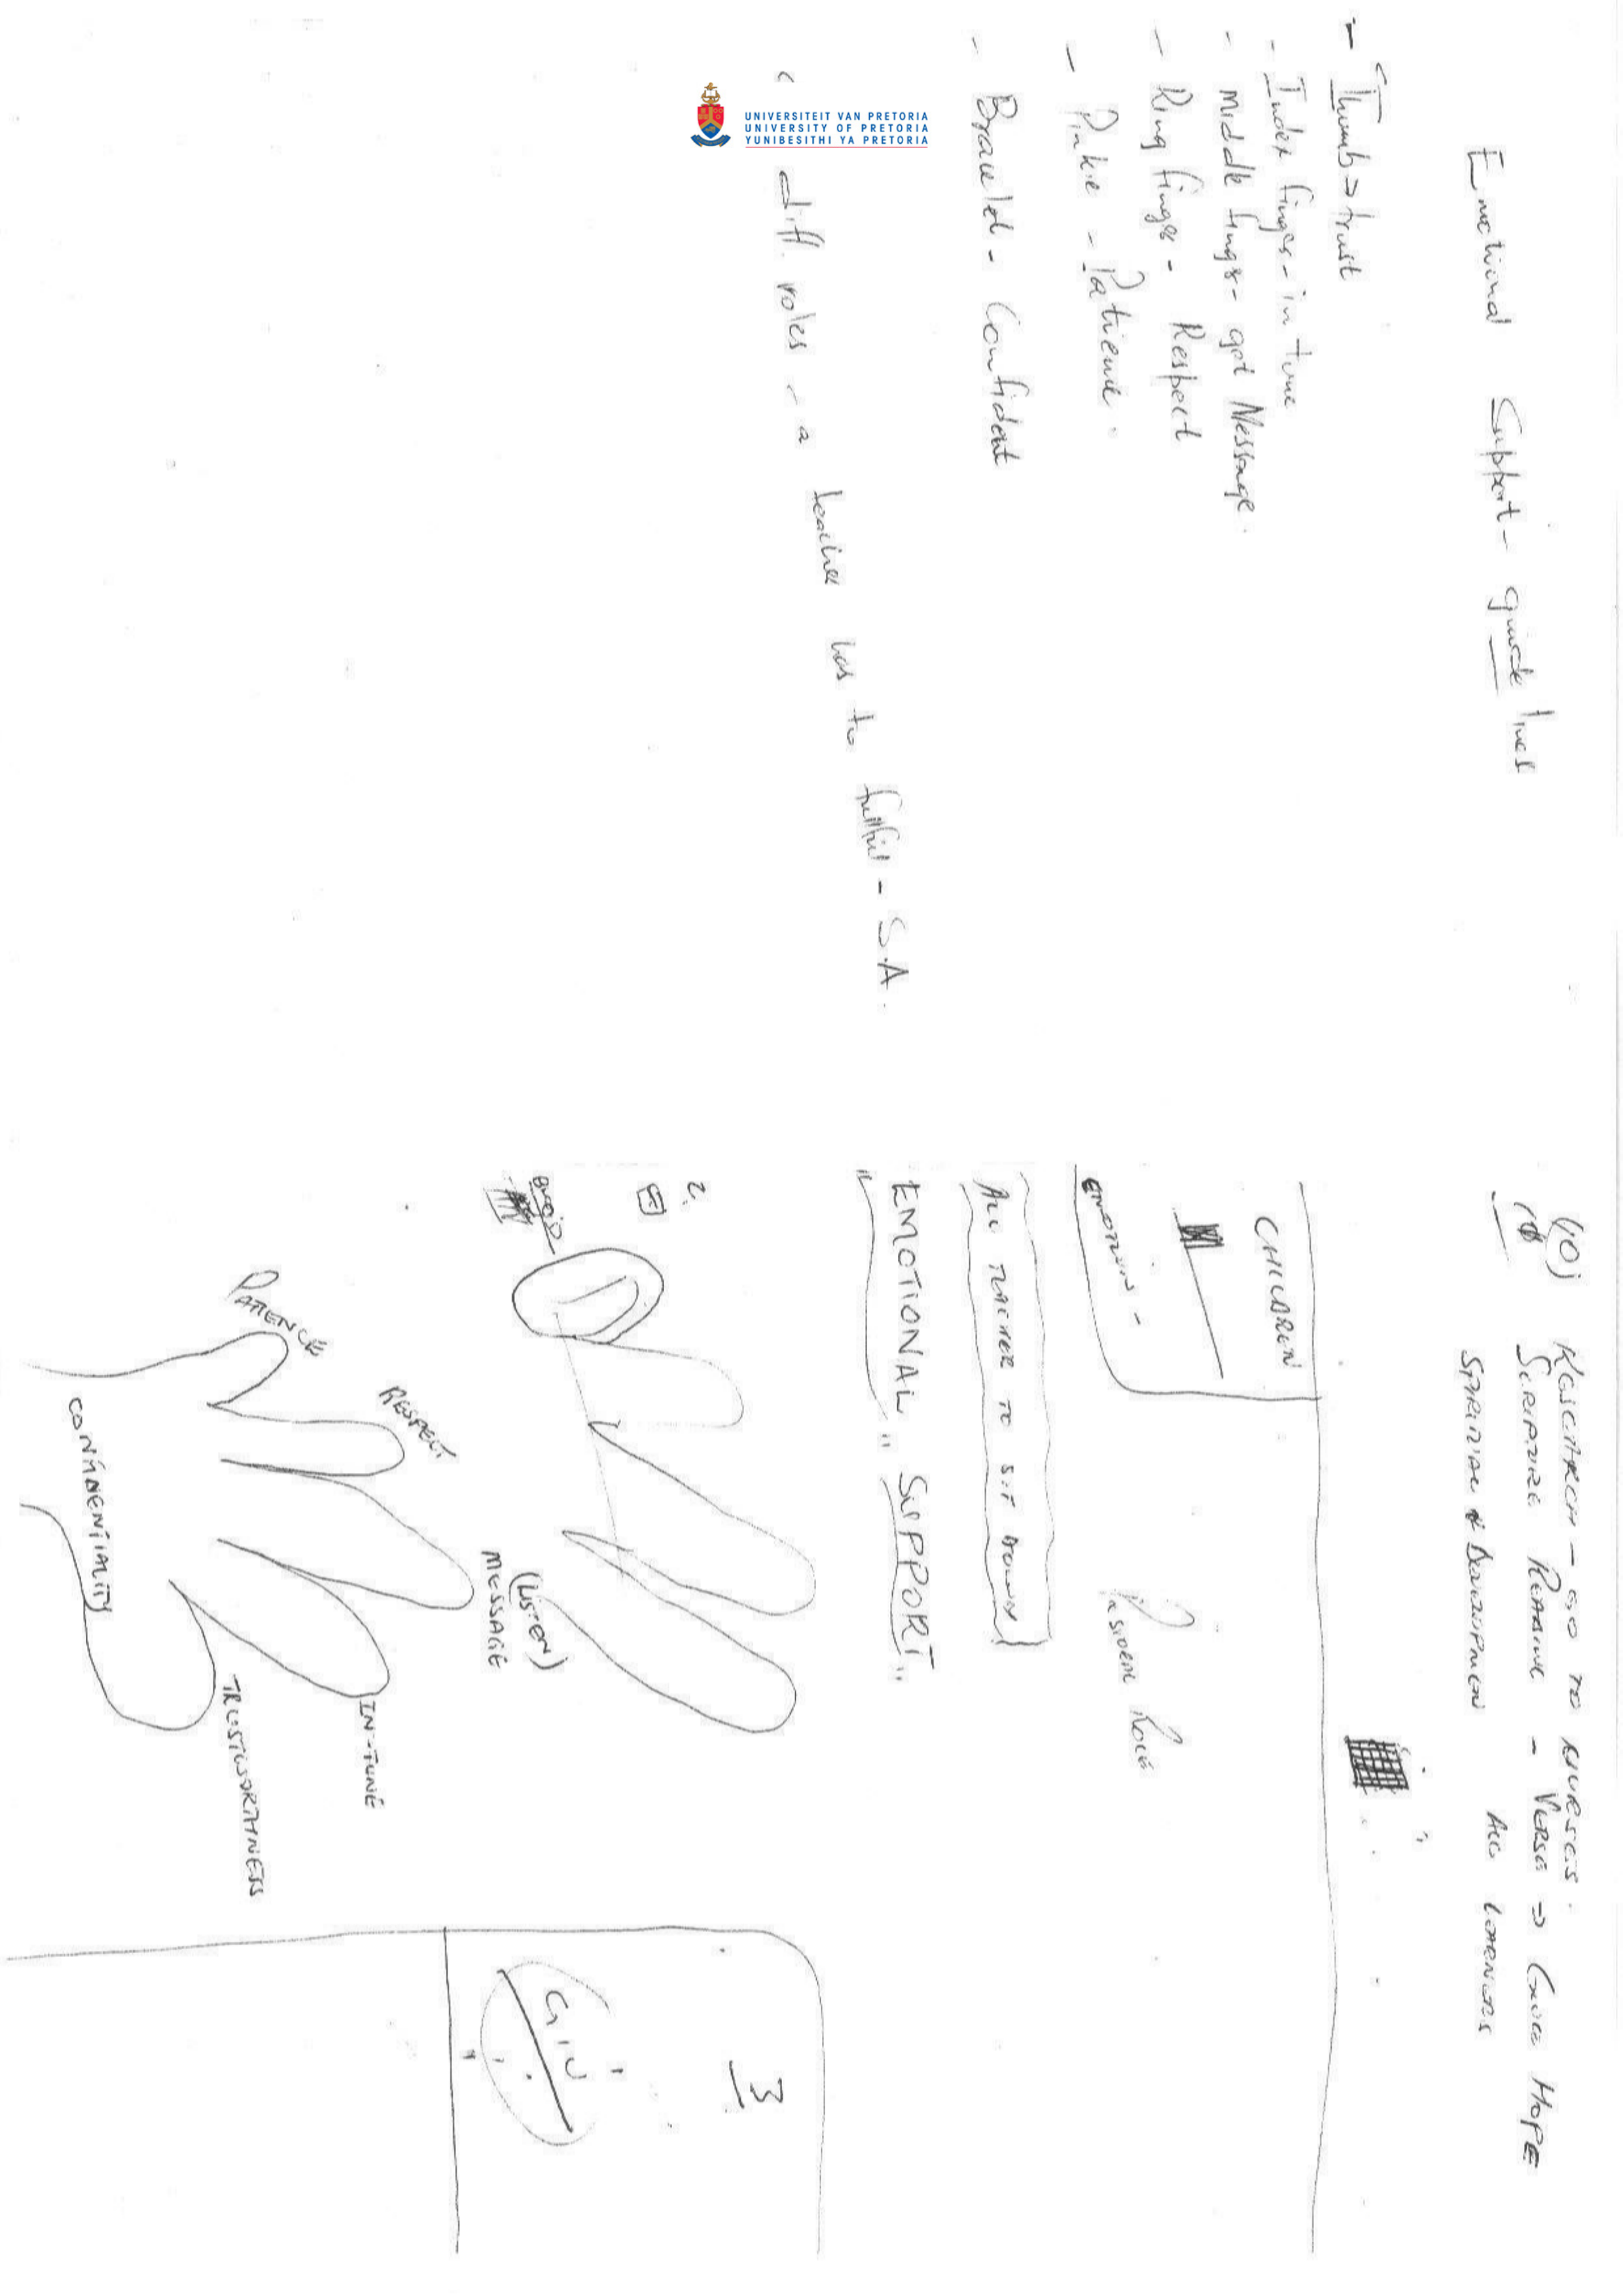 UNIVERSITEIT VAN PRETORIA
UNIVERSITY OF PRETORIA
YUNIBESITHI YA PRETORIA
Emotional Support - guide lines
- Thumb → trust
- Index finger - in tune
- Middle finger - get Message.
- Ring finger - Respect
- Pinkie - Patience.
- Bracelet - Confident
diff. roles - a teacher has to fulfil - S.A.
10)
RESEARCH - GO TO NURSES.
SCRIPTURE READING - VERSE ⇒ GIVE HOPE
SPIRITUAL & DEVELOPMENT ALL LEARNERS
CHILDREN
EMOTION -
PASTORAL ROLE
ALL TEACHER TO SIT DOWN
EMOTIONAL "SUPPORT"
2.
3
(LISTEN)
MESSAGE
RESPECT
PATIENCE
IN-TUNE
TRUSTWORTHINESS
CONFIDENTIALITY